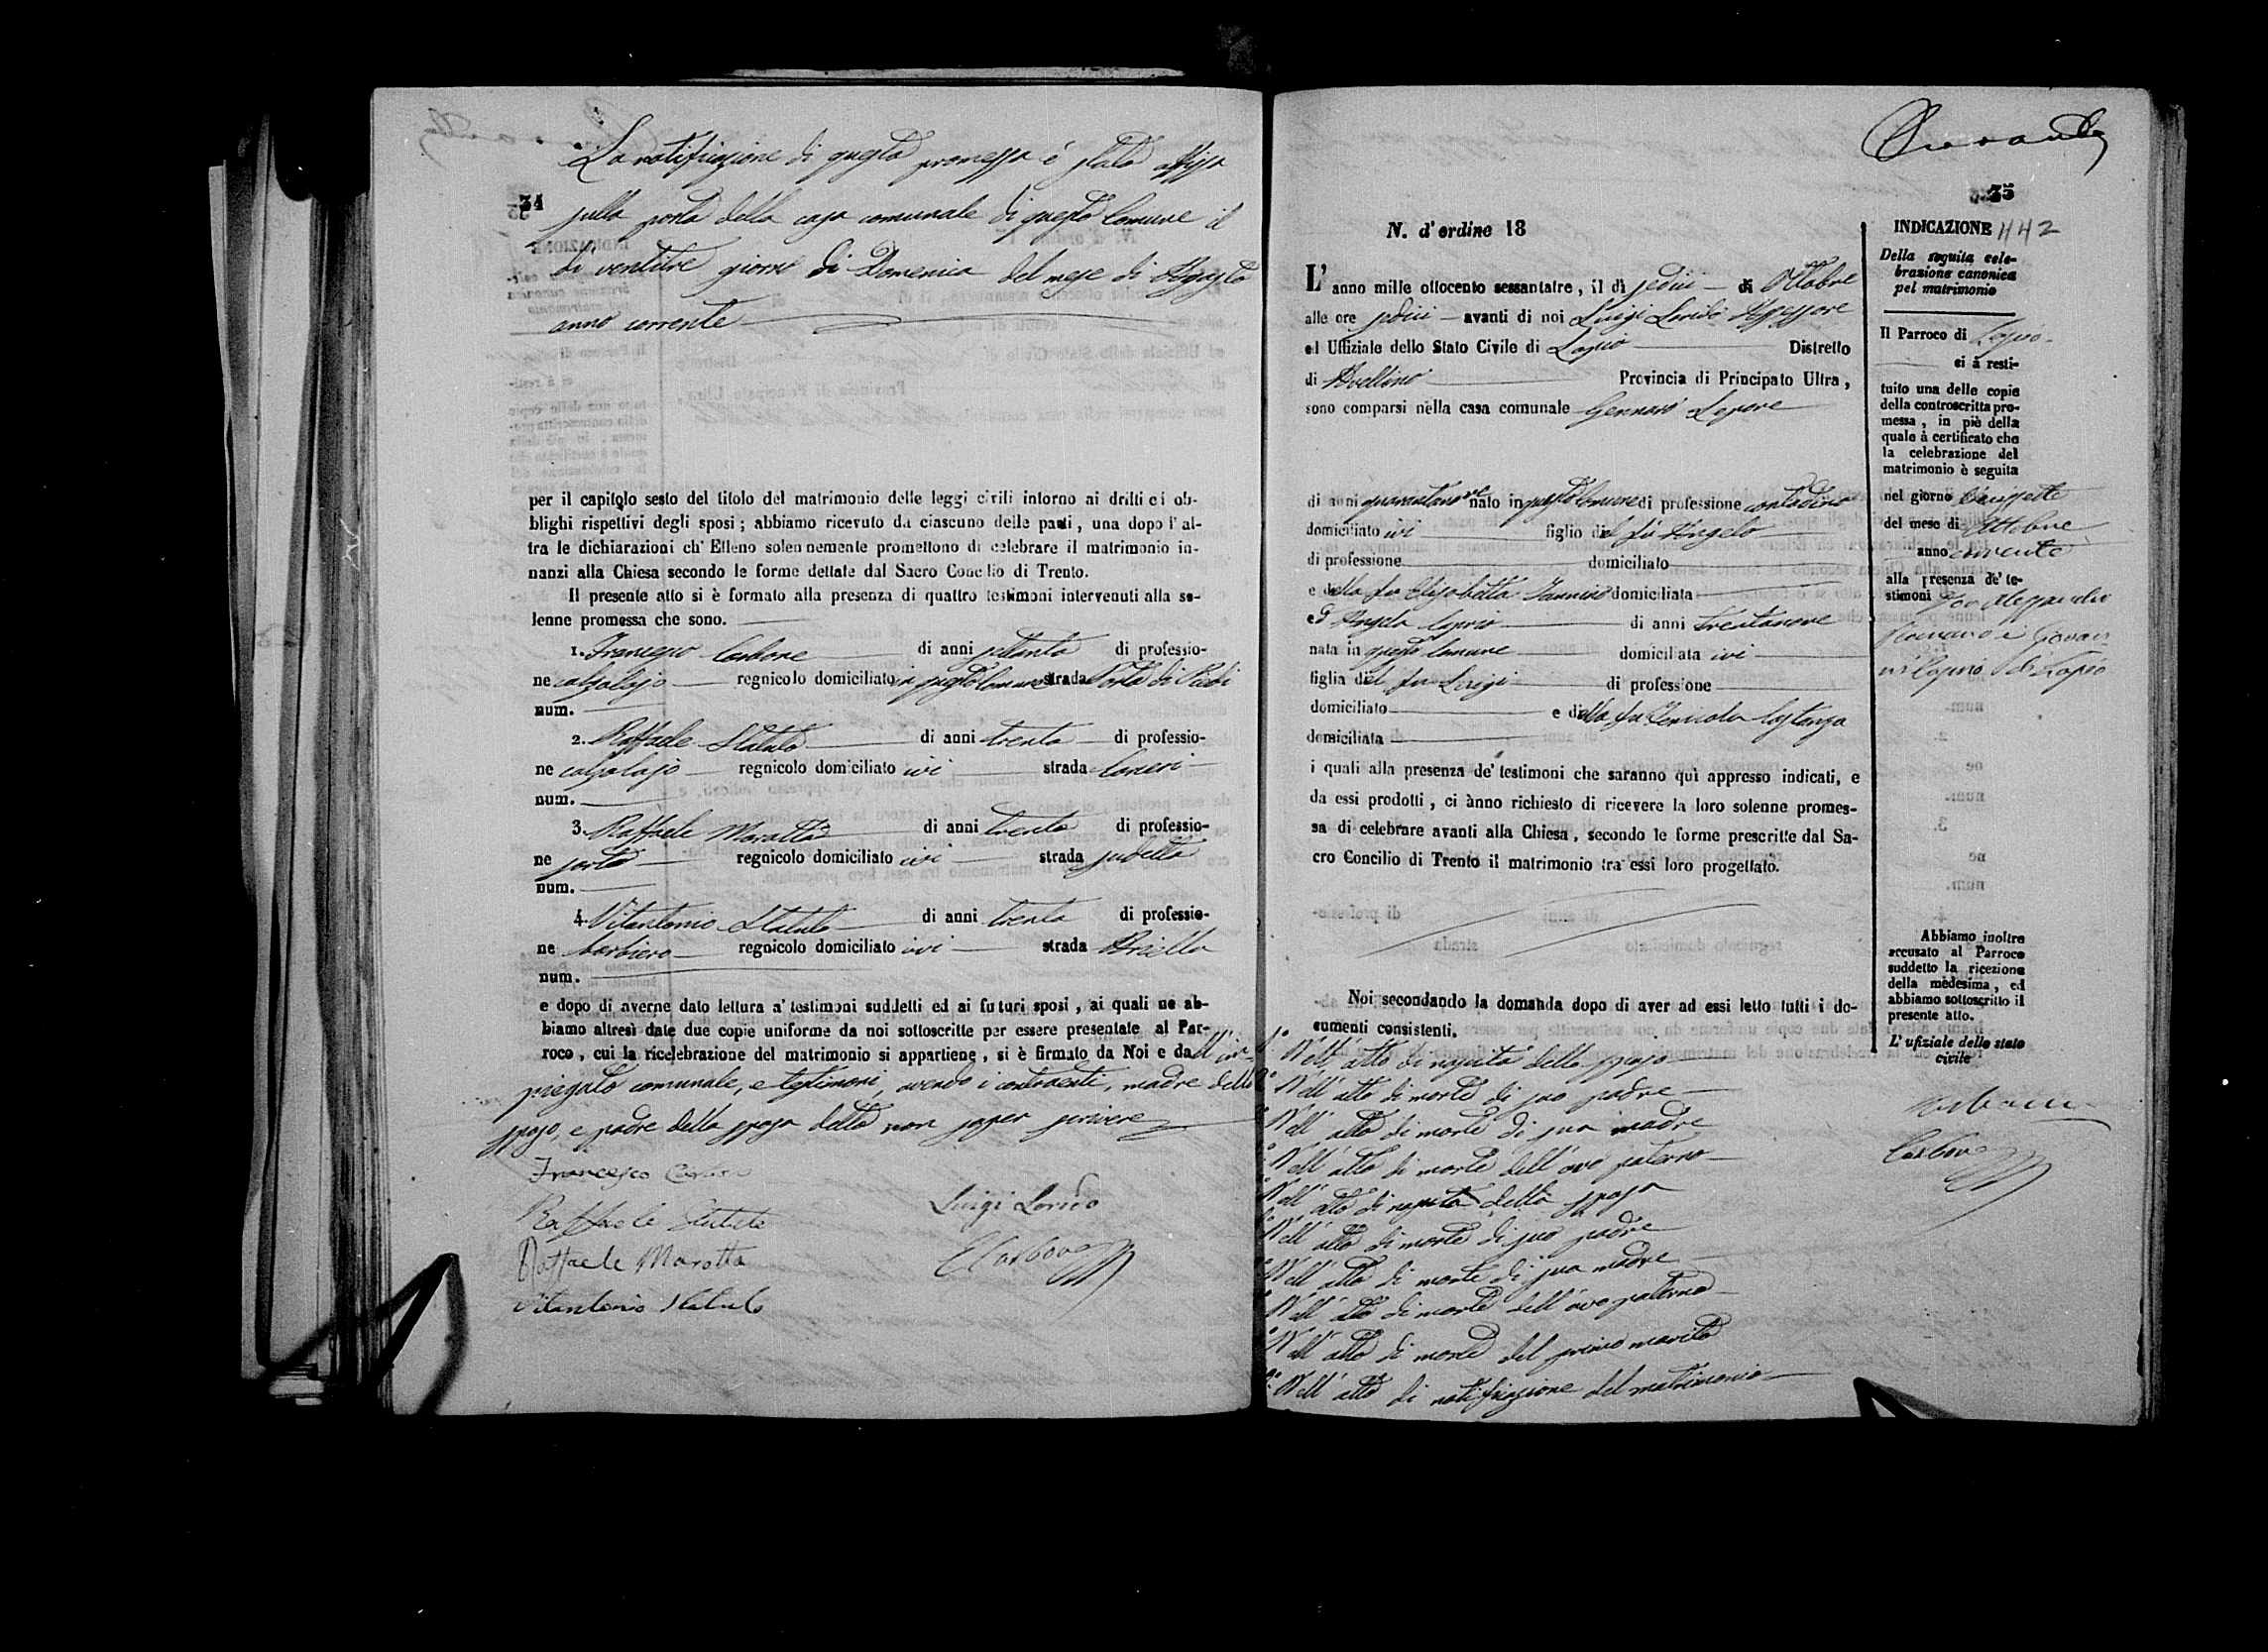 34
La notificazione di questa promessa è stata affissa
sulla porta della casa comunale di questo Comune il
dì ventitre giorno di Domenica del mese di Agosto
anno corrente
per il capitolo sesto del titolo del matrimonio delle leggi civili intorno ai dritti ei ob-
blighi rispettivi degli sposi ; abbiamo ricevuto da ciascuno delle parti, una dopo l'al-
tra le dichiarazioni ch' Elleno solennemente promettono di celebrare il matrimonio in-
nanzi alla Chiesa secondo le forme dettate dal Sacro Concilio di Trento.
Il presente atto si è formato alla presenza di quattro testimoni intervenuti alla so-
lenne promessa che sono.
1. Francesco Carbone di anni settanta di professio-
ne calzolajo regnicolo domiciliato in questo Comune strada Porta di
num.
2. Raffaele Statuto di anni trenta di professio-
ne calzolajo regnicolo domiciliato ivi strada
num.
3. Raffaele Marotta di anni trenta di professio-
ne sarto regnicolo domiciliato ivi strada
num.
4. Vitantonio Statuto di anni trenta di professio-
ne barbiero regnicolo domiciliato ivi strada
num.
e dopo di averne dato lettura a' testimoni suddetti ed ai futuri sposi , ai quali ne ab-
biamo altresì date due copie uniforme da noi sottoscritte per essere presentate al Par-
roco , cui la ricelebrazione del matrimonio si appartiene , si è firmato da Noi e dall' im-
piegato comunale, e testimoni, avendo i contraenti, madre dello
sposo, e padre della sposa detto non saper scrivere
Francesco Carbone
Raffaele Statuto
Raffaele Marotta
Vitantonio Statuto
Luigi Lorido
Carbone
35
N. d'ordine 18
L' anno mille ottocento sessantatre , il dì sedici di Ottobre
alle ore sedici avanti di noi Luigi Lorido Assessore
ed Uffiziale dello Stato Civile di Lapio Distretto
di Avellino Provincia di Principato Ultra ,
sono comparsi nella casa comunale Gennaro Lepore
di anni quarantanove nato in questo Comune di professione contadino
domiciliato ivi figlio del fu Angelo
di professione domiciliato
e della fu Elisabetta domiciliata
ed Angela Caprio di anni trentanove
nata in questo Comune domiciliata ivi
figlia del fu Luigi di professione
domiciliato e della fu Costanza
domiciliata
i quali alla presenza de' testimoni che saranno quì appresso indicati, e
da essi prodotti , ci ànno richiesto di ricevere la loro solenne promes-
sa di celebrare avanti alla Chiesa , secondo le forme prescritte dal Sa-
cro Concilio di Trento il matrimonio tra essi loro progettato.
Noi secondando la domanda dopo di aver ad essi letto tutti i do-
cumenti consistenti.
1º Nell' atto di nascita dello sposo
2º Nell' atto di morte di suo padre
Nell' atto di morte di sua madre
Nell' atto di morte dell' avo paterno
Nell' atto di nascita della sposa
Nell' atto di morte di suo padre
Nell' atto di morte di sua madre
Nell' atto di morte dell' avo paterno
Nell' atto di morte del primo marito
Nell' atto di notificazione del matrimonio
INDICAZIONE 442
Della seguita cele-
brazione canonica
pel matrimonio
Il Parroco di Lapio
ci à resti-
tuito una delle copie
della controscritta pro-
messa , in piè della
quale à certificato che
la celebrazione del
matrimonio è seguita
nel giorno diciassette
del mese di Ottobre
anno corrente
alla presenza de' te-
stimoni Alessandro
Romano e Giovan
ni Caprio di Lapio
Abbiamo inoltre
accusato al Parroco
suddetto la ricezione
della medesima , ed
abbiamo sottoscritto il
presente atto.
L' ufiziale dello stato
civile
Carbone